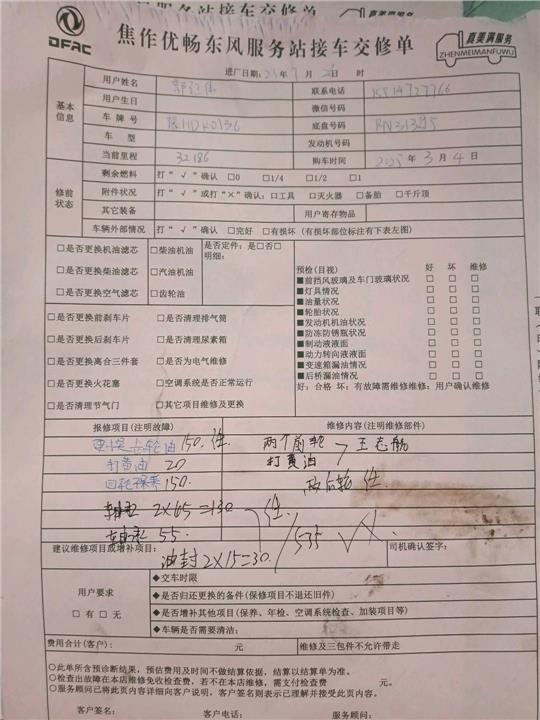 DFAC
焦作优畅东风服务站接车交修单
真美满服务
ZHENMEIMANFUWU
进厂日期: 21年 月 日 时
基本信息
用户姓名 联系电话
用户生日 微信号码
车牌号 豫HDK0136 底盘号码 RN31395
车型 发动机号码
当前里程 32186 购车时间 年3月4日
修前状态
剩余燃料 打“√”确认 □0 □1/4 □1/2 □1
附件状况 打“√”或打“×”确认:□工具 □灭火器 □备胎 □千斤顶
其它装备 用户寄存物品
车辆外部情况 打“√”确认 □完好 □有损坏(有损坏部位标注有下表左图)
□是否更换机油滤芯 □柴油机油 是否定件:是□否□
明细:
□是否更换柴油滤芯 □汽油机油
□是否更换空气滤芯 □齿轮油
预检(目视) 好 坏 维修
■前挡风玻璃及车门玻璃状况 □ □ □
■灯具情况 □ □ □
■油量状况 □ □ □
■轮胎状况 □ □ □
■发动机机油状况 □ □ □
■防冻防锈瓶状况 □ □ □
■制动液液面 □ □ □
■动力转向液液面 □ □ □
■变速箱漏油情况 □ □ □
■后桥漏油情况 □ □ □
好:合格 坏:有故障需维修维修:用户确认维修
□是否更换前刹车片 □是否清理排气筒
□是否更换后刹车片 □是否清理尿素箱
□是否更换离合三件套 □是否为电气维修
□是否更换火花塞 □空调系统是否正常运行
□是否清理节气门 □其它项目维修及更换
报修项目(注明故障) 维修内容(注明维修部件)
更换齿轮油 150. 件 两个前轮 王志航
打黄油 20 打黄油
四轮保养 150. 两后轮 件
轴承 2×65=130 件
轴承 55. 535
建议维修项目或增补项目: 油封2×15=30. 司机确认签字:
用户要求
□有 □无
◆交车时限
◆是否归还更换的备件(保修项目不退还旧件)
◆是否增补其他项目(保养、年检、空调系统检查、加装项目等)
◆车辆是否需要清洁:
费用合计(客户): 元 维修及三包件不允许带走
○此单所含预诊断结果,预估费用及时间不做结算依据,结算以结算单为准。
○检查出故障在本店维修免收检查费,若不在本店维修,需支付检查费 元。
○服务顾问已将此页内容详细向客户说明,客户签名则表示已理解并接受此页内容。
客户签名: 客户电话: 服务顾问: